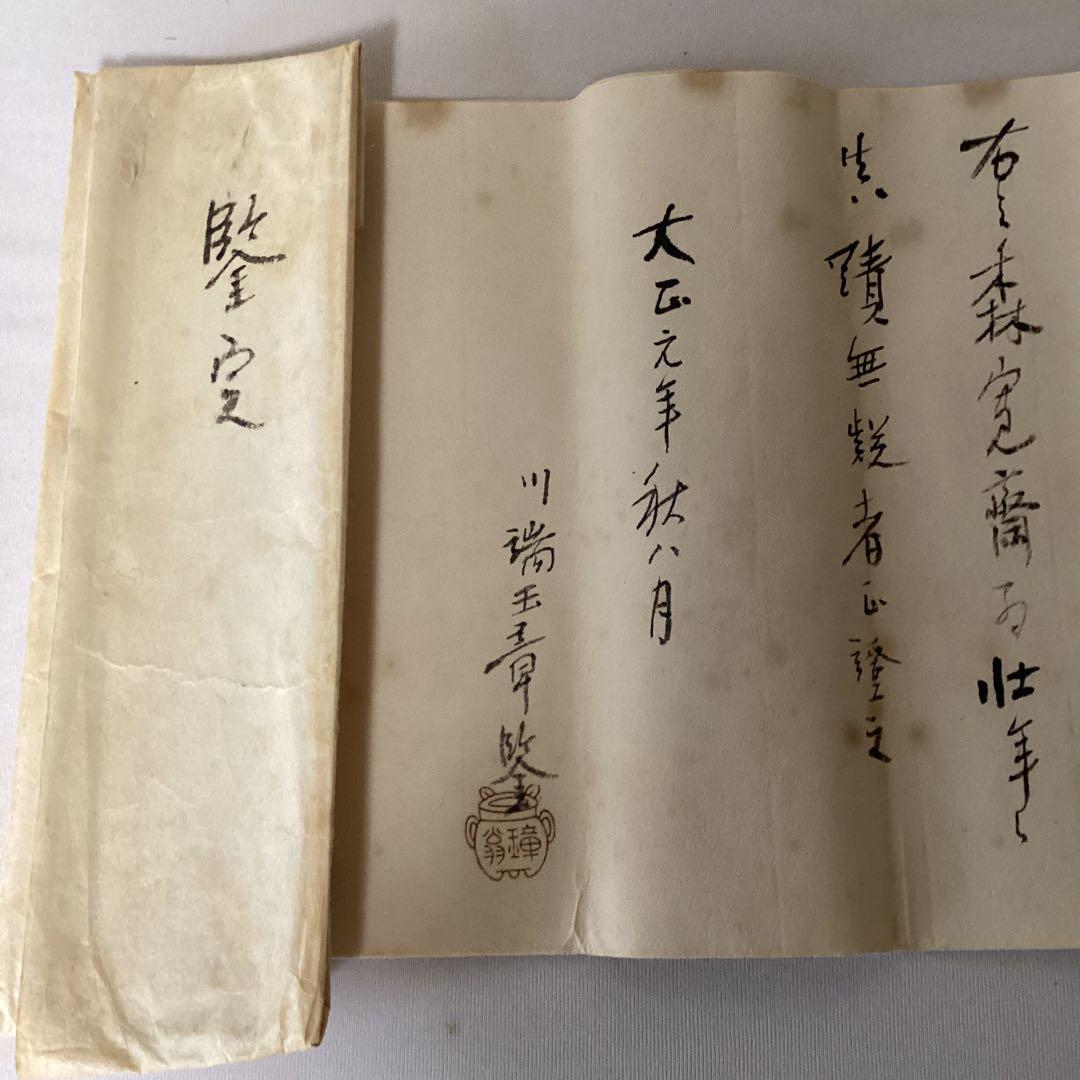 右之森寛齋壮年之
真蹟無疑者正證之
大正元年秋八月
川端玉章鑒
璋翁
鑒定